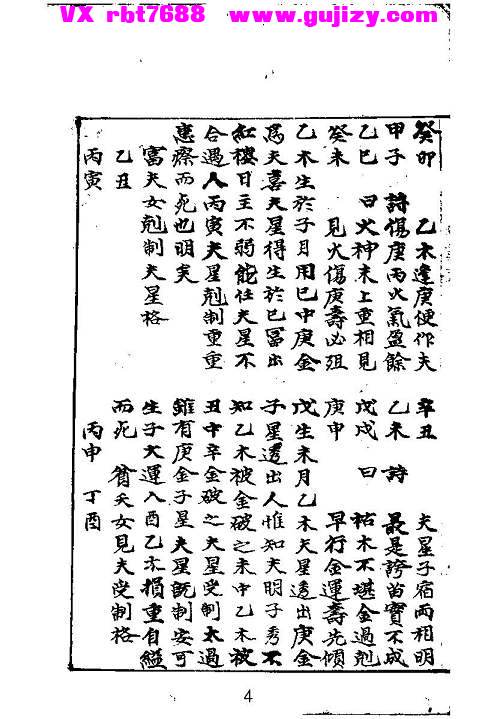 VX rbt7688 www.gujizy.com
癸卯 乙木逢庚便作夫
甲子 詩傷庚丙火氣盈餘
乙巳 曰火神未上重相見
癸未 見火傷庚壽必殂
乙木生於子月用巳中庚金
為夫喜夫星得生於巳冨出
紅樓日主不弱能任夫星不
合過人丙寅夫星剋制重重
患瘵而死也明矣
富夫女剋制夫星格
乙丑
丙寅
辛丑 夫星子宿兩相明
乙未 詩 最是誇苗實不成
戊戌 曰 枯木不堪金過剋
庚申 早行金運壽先傾
戊生未月乙木夫星透出庚金
子星透出人惟知夫明子秀不
知乙木被金破之未中乙木被
丑中辛金破之夫星受制太過
雖有庚金子星夫星既制安可
生子大運入酉乙木損重自縊
而死 貧夭女見夫受制格
丙申 丁酉
4